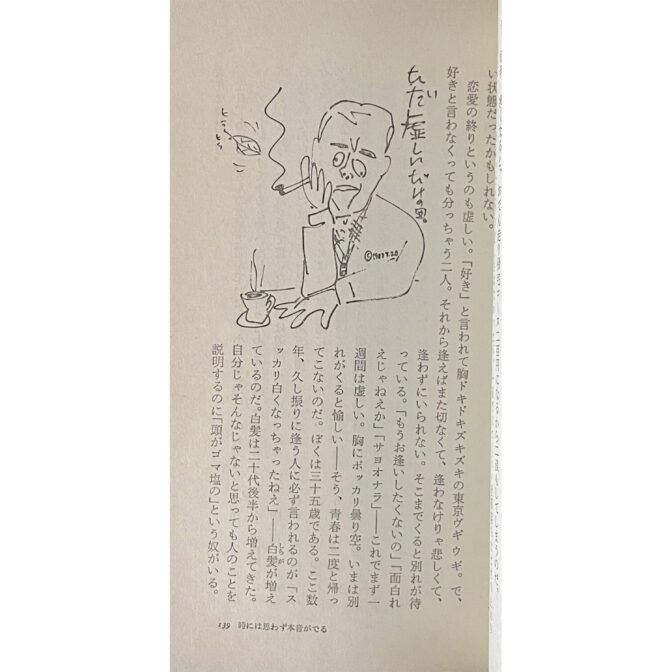 い状態だったかもしれない。
恋愛の終りというのも虚しい。「好き」と言われて胸ドキドキズキズキの東京ヴギ ウギ。で、
好きと言わなくっても分っちゃう二人。それから逢えばまた切なくて、逢わなけりゃ悲しくて、
逢わずにいられない。そこまでくると別れが待
っている。「もうお逢いしたくないの」「面白れ
えじゃねえか」「サヨオナラ」――これでまず一
週間は虚しい。胸にポッカリ曇り空。いまは別
れがくると愉しい――そう、青春は二度と帰っ
てこないのだ。ぼくは三十五歳である。ここ数
年、久し振りに逢う人に必ず言われるのが「ス
ッカリ白くなっちゃったねえ」――白髪が増え
ているのだ。白髪は二十代後半から増えてきた。
自分じゃそんなじゃないと思っても人のことを
説明するのに「頭がゴマ塩の」という奴がいる。
虚しいだけの図。
139 時には思わず本音がでる